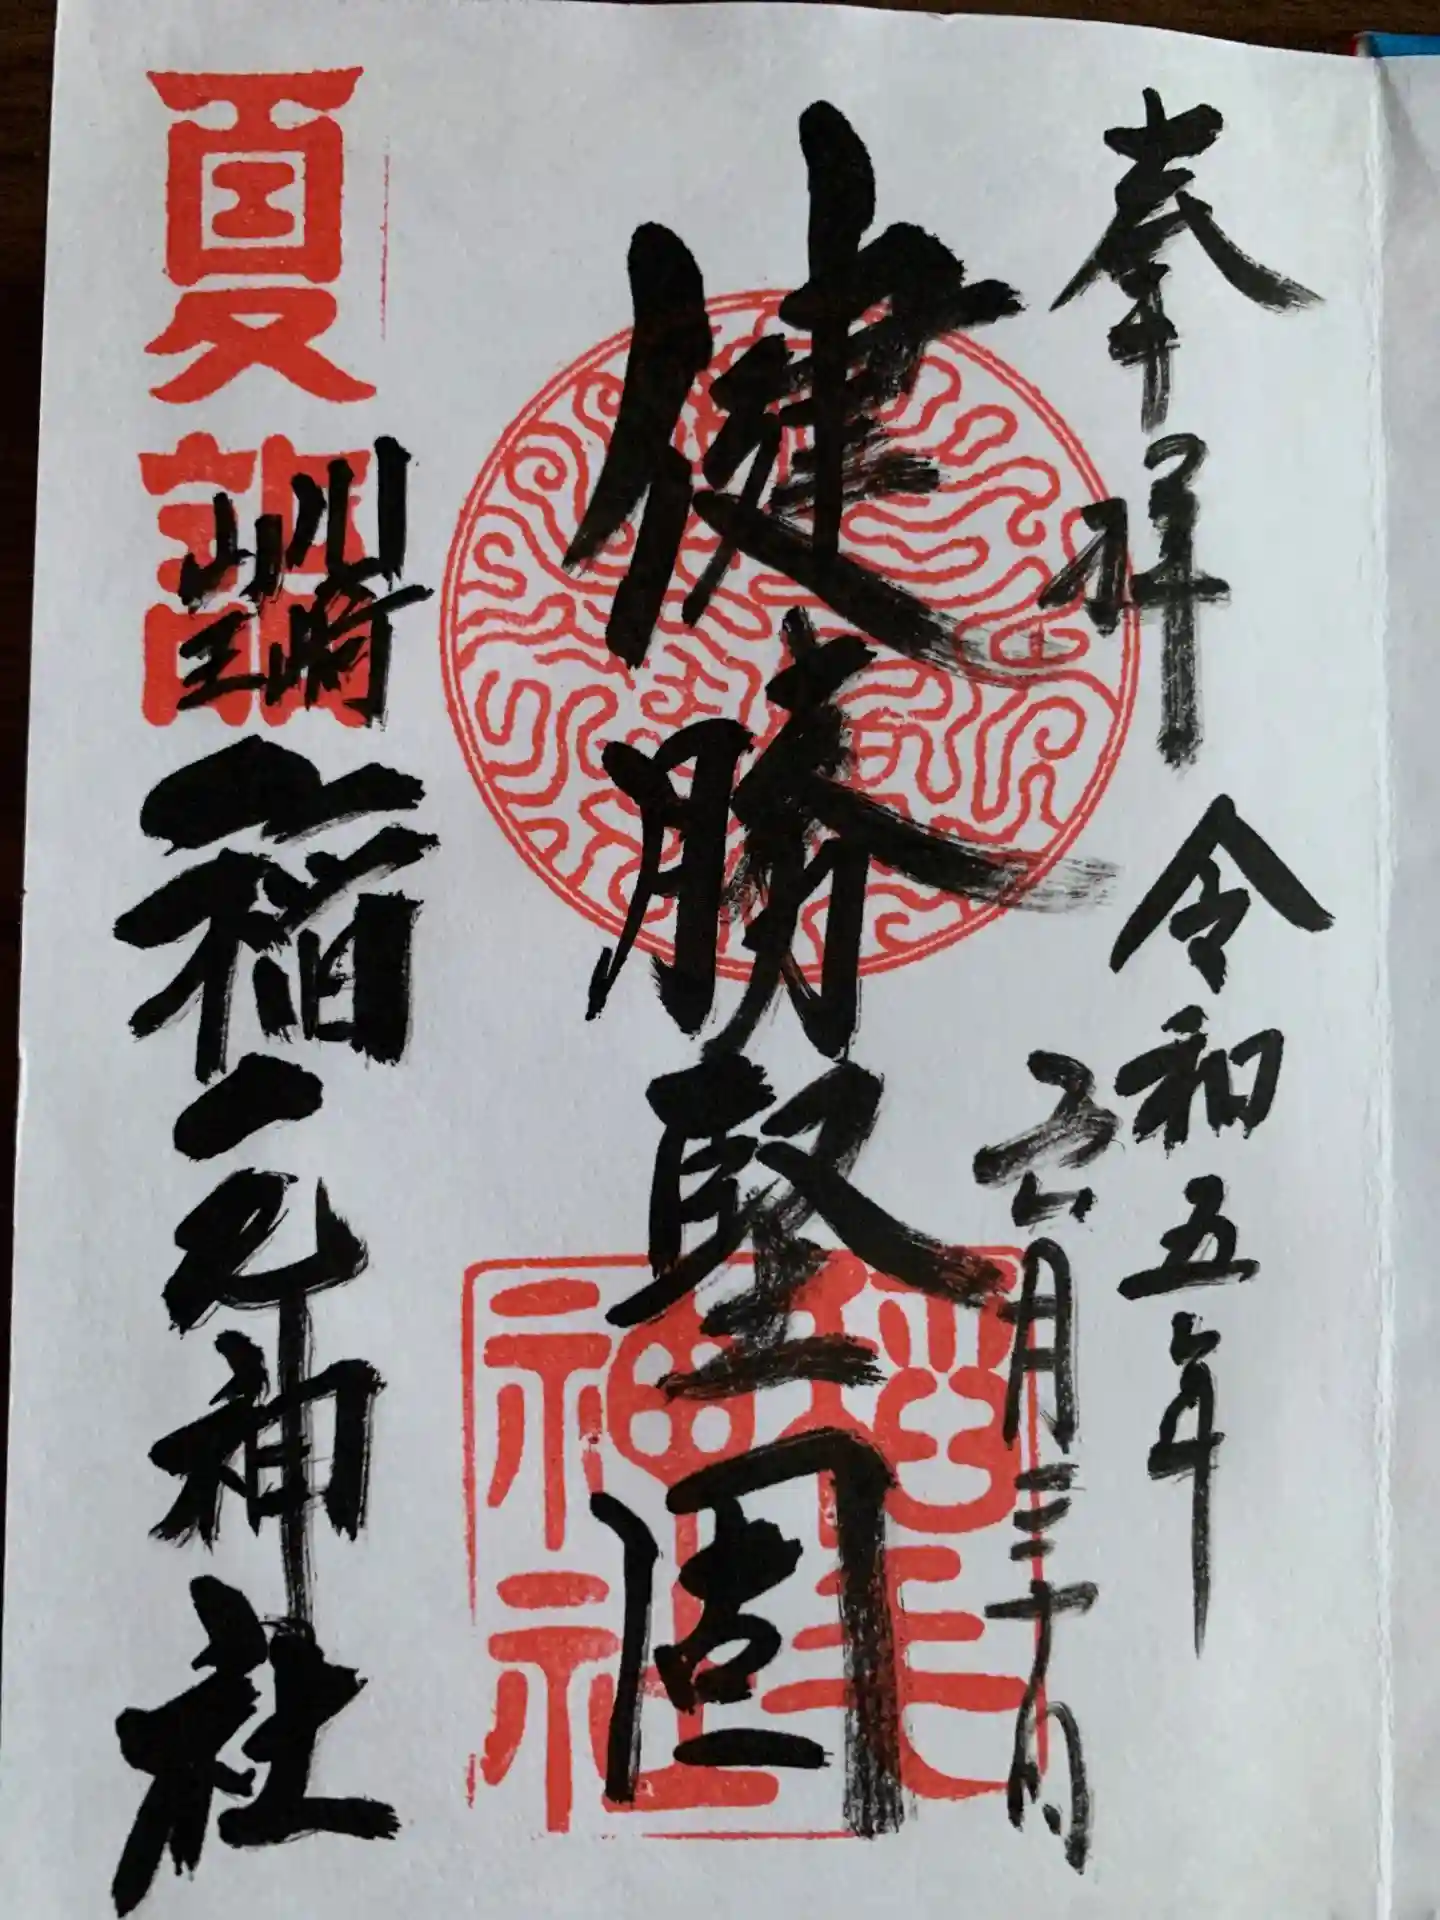 奉拝
令和五年
六月三十日
健勝堅固
夏詣
川崎
山王
稲毛神社
稲毛神社